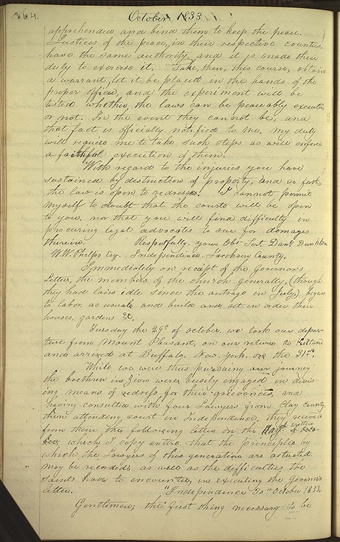 364.
October 1833
apprehended and bind them to keep the peace.
Justices of the peace, in their respective counties
have the same authority and it is made their
duty to exercise it. Take, then, this course, obtain
a warrant, let it be placed in the hands of the
proper officer, and the experiment will be
tested whether the laws can be peaceably executed
or not. In the event they cannot be, and
that fact is officially notified to me, my duty
will require me to take such steps as will enforce
a faithful execution of them.
With regard to the injuries you have
sustained by destruction of property, and so forth
the law is open to redress. I cannot permit
myself to doubt that the courts will be open
to you, nor that you will find difficulty in
procuring legal advocates to sue for damages
therein. Respectfully, your Obt. Svt. Danl Dunklin
W.W. Phelps esq. Independence, Jackson County.
Immediately on receipt of the Governor's
Letter, the members of the church generally, (though
they had laid idle since the outrage in July) began
to labor as usual, and build and set in order their
houses, gardens &c.
Tuesday the 29th of october, we took our depar-
ture from Mount Pleasant, on our return to Kirtland
and arrived at Buffalo, New York, on the 31st.
While we were thus pursuing our journey
the brethren in Zion were busily engaged in devis-
ing means of redress for their grievances, and
having consulted with four Lawyers from Clay county
then attending court in Independence, they received
from them the following letter on the
which I copy entire, that the principles by
which the Lawyers of this generation are actuated
may be recorded, as well as the difficulties the
Saints have to encounter, in executing the Governor's
letter. "Independence 30th October 1833.
Gentlemen; the first thing necessary to be